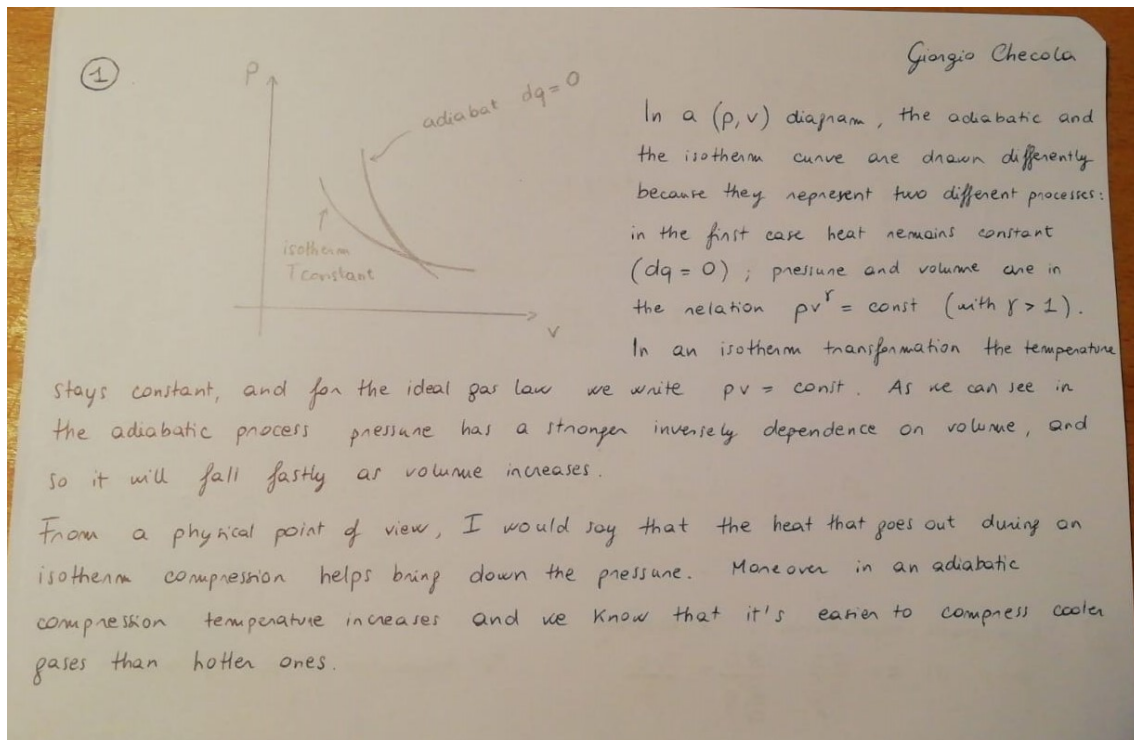 1
Giorgio Checola
P
adiabat dq = 0
isotherm
T constant
v
In a (p, v) diagram, the adiabatic and
the isotherm curve are drawn differently
because they represent two different processes:
in the first case heat remains constant
(dq = 0); pressure and volume are in
the relation pv^γ = const (with γ > 1).
In an isotherm transformation the temperature
stays constant, and for the ideal gas law we write pv = const. As we can see in
the adiabatic process pressure has a stronger inversely dependence on volume, and
so it will fall fastly as volume increases.
From a physical point of view, I would say that the heat that goes out during an
isotherm compression helps bring down the pressure. Moreover in an adiabatic
compression temperature increases and we know that it's easier to compress cooler
gases than hotter ones.